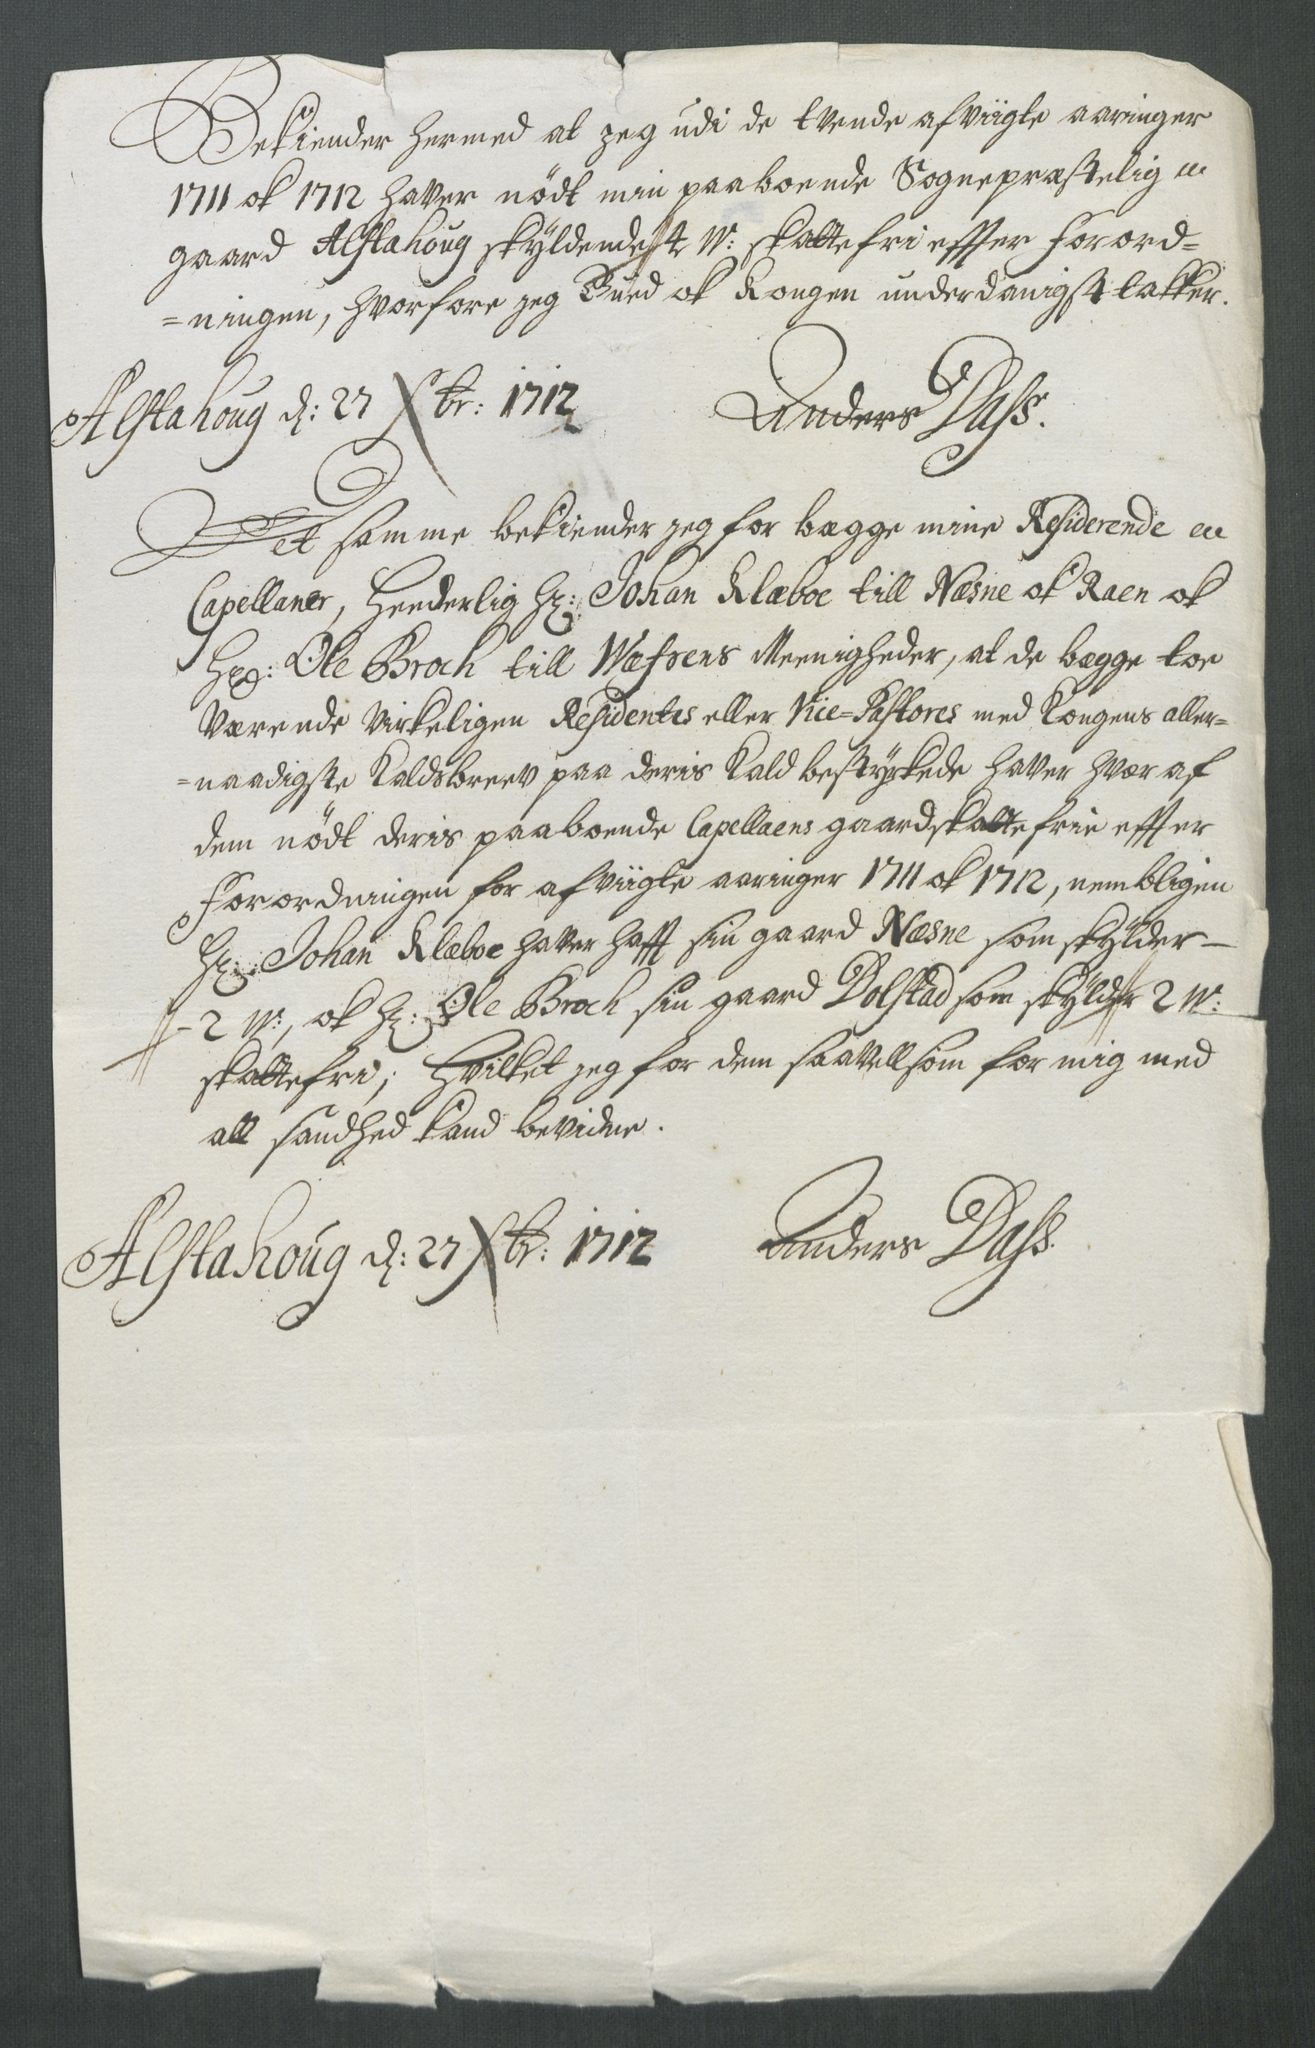 Bekiender hermed at jeg udi de tvende afviigte aaringer
1711 ok 1712 haver nödt min paaboende Sognepræstelig
gaard Alstahoug skyldendes 4 W: skattefri effter Forord=
=ningen, hvorfore jeg Gued ok Kongen underdanigst takker.
Alstahoug d: 27 Xbr: 1712 Anders Dass.
Det samme bekiender jeg for bægge mine Residerende
Capellaner, Hæderlig Hr: Johan Klæboe till Næsne ok Raen ok
Hr: Ole Broch till Wæfsens Meenigheder, at de bægge toe
værende virkeligen Residentes eller Vice=Pastores med Kongens aller=
=naadigste Kaldsbreev paa deris Kald bestyrkede haver hvær af
dem nödt deris paaboende Capellaens gaard skattefrie effter
Forordningen for afviigte aaringer 1711 ok 1712, nembligen
Hr: Johan Klæboe haver hafft sin gaard Næsne som skylder
2 W:, ok Hr: Ole Broch sin gaard Dolstad som skylder 2 W:
skattefri; Hvilket jeg for dem saavellsom for mig med
all sandhed kand bevidne.
Alstahoug d: 27 Xbr: 1712 Anders Dass.